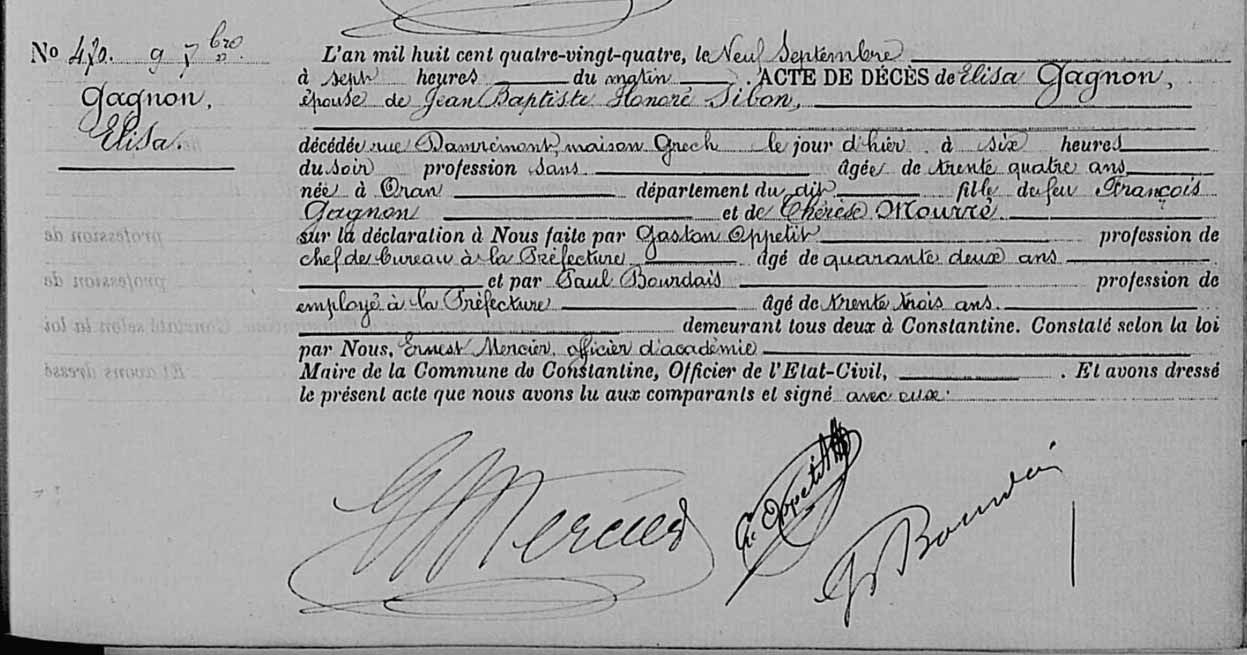 No 470. 9 7bre.
Gagnon,
Elisa.
L'an mil huit cent quatre-vingt-quatre, le Neuf Septembre
à sept heures du matin. ACTE DE DÉCÈS de Elisa Gagnon,
épouse de Jean Baptiste Honoré Sibon,
décédée rue Damrémont, maison Grech le jour d'hier à six heures
du soir profession sans âgée de trente quatre ans
née à Oran département du dit fille de feu François
Gagnon et de Thérèse Mourré
sur la déclaration à Nous faite par Gaston Oppetit profession de
chef de bureau à la Préfecture âgé de quarante deux ans
et par Paul Bourdais profession de
employé à la Préfecture âgé de trente trois ans.
demeurant tous deux à Constantine. Constaté selon la loi
par Nous, Ernest Mercier, officier d'académie
Maire de la Commune de Constantine, Officier de l'Etat-Civil, . Et avons dressé
le présent acte que nous avons lu aux comparants et signé avec eux.
profession de
profession de
Constaté selon la loi
Et avons dressé
E Mercier
G. Oppetit
P Bourdais